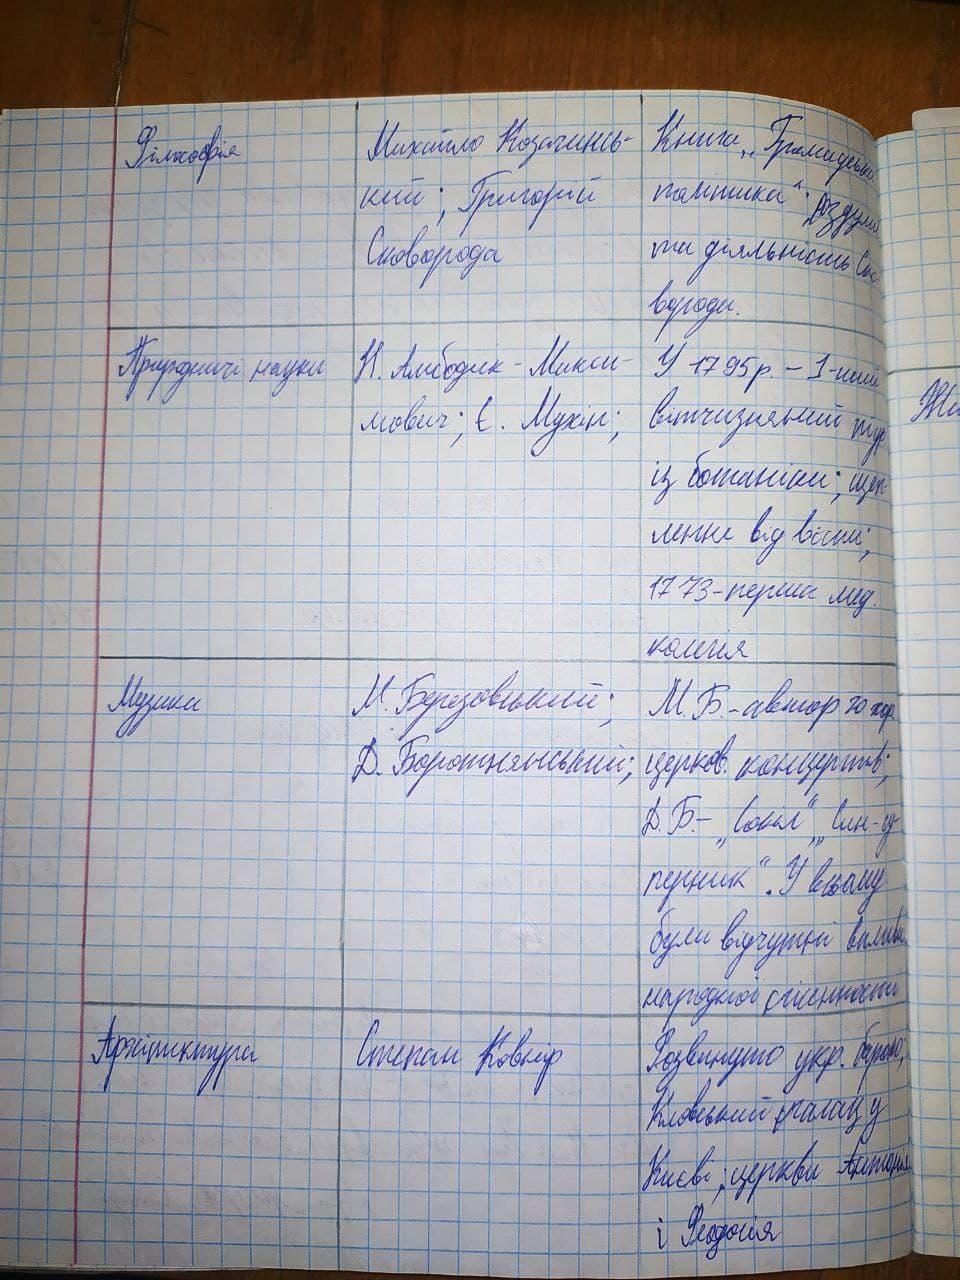 Філософія
Михайло Козачинсь-
кий; Григорій
Сковорода
Книга „Громадська
політика“; Роздуми
та діяльність Ско-
вороди.
Природничі науки
Н. Амбодик-Макси-
мович; Є. Мухін;
У 1795р. – 1-ший
вітчизняний
із ботаніки; щеп-
лення від віспи;
1773-перша мед.
колегія
Музика
М. Березовський;
Д. Бортнянський;
М.Б.-автор 20 хор.
церков. концертів;
Д.Б.- „Сокіл“, „Син-су-
перник“. У всьому
були відчутні впливи
народної пісенності
Архітектура
Степан Ковнір
Розвинуто укр. бароко;
Кловський палац у
Києві; церкви Антонія
і Феодосія
Жи